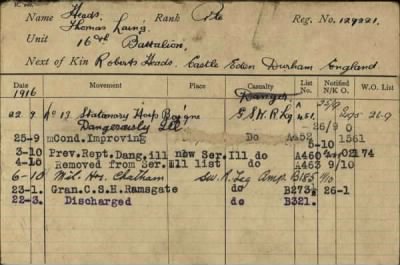 Name Heads, Rank Pte Reg. No. 129221.
Thomas Laing
Unit 16th Battalion,
Next of Kin Robert Heads. Castle Eden Durham England
Date Movement Place Casualty List No. Notified N/K O. W.O. List
1916 Danger 25/9
22.9 No 13 Stationary Hosp Bo'gne G.S.W.R.Lg 451. 26-9
Dangerously Ill 26/9 0
25-9 mCond.Improving Do A452 1561
5-10
3-10 Prev.Rept.Dang.ill now Ser.Ill do A460 2174
4-10 Removed from Ser. Ill list do A463 9/10
6-10 Mil. Hos. Chatham Sw. R Leg Amp. B185
23-1. Gran.C.S.H.Ramsgate do B273. 26-1
22-3. Discharged do B321.